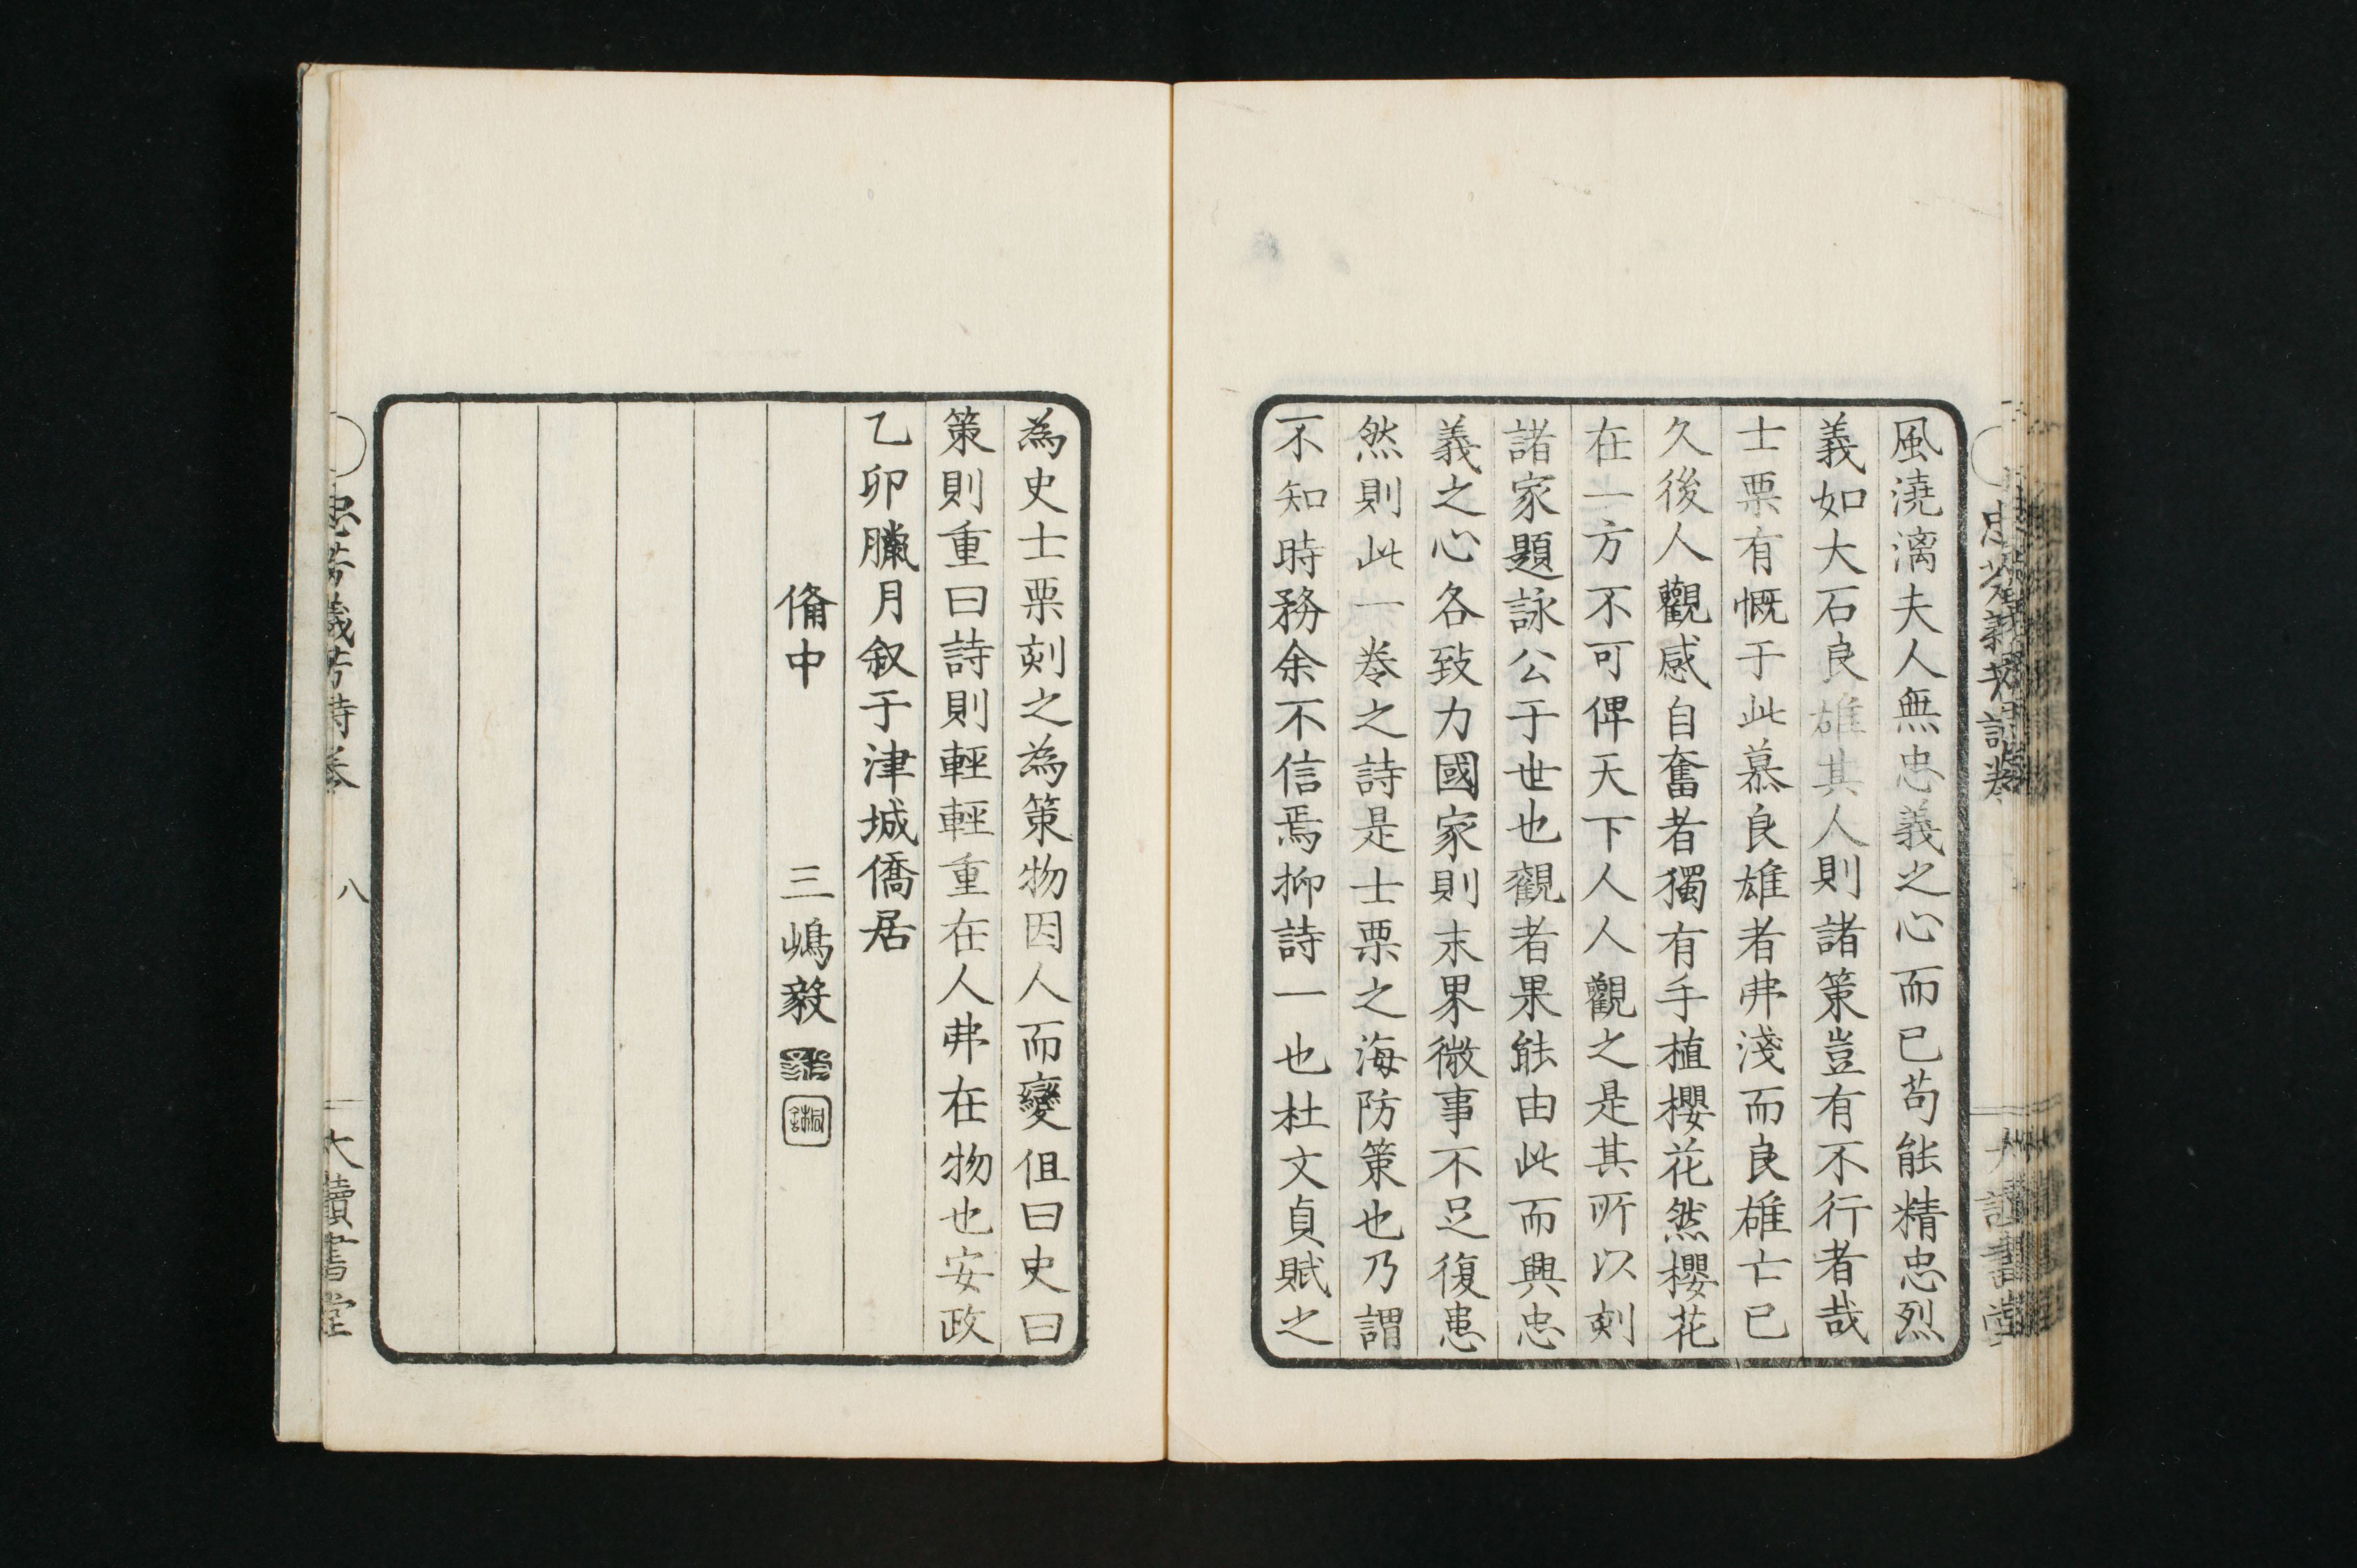 風澆漓夫人無忠義之心而已苟能精忠烈
義如大石良雄其人則諸策豈有不行者哉
士栗有慨于此慕良雄者弗淺而良雄亡已
久後人觀感自奮者獨有手植櫻花然櫻花
在一方不可俾天下人人觀之是其所以刻
諸家題詠公于世也觀者果能由此而興忠
義之心各致力國家則末界微事不足復患
然則此一卷之詩是士栗之海防策也乃謂
不知時務余不信焉抑詩一也杜文貞賦之
為史士栗刻之為策物因人而變但曰史曰
策則重曰詩則輕輕重在人弗在物也安政
乙卯臘月叙于津城僑居
備中 三嶋毅
忠芳義芳詩卷 八 大讀書堂